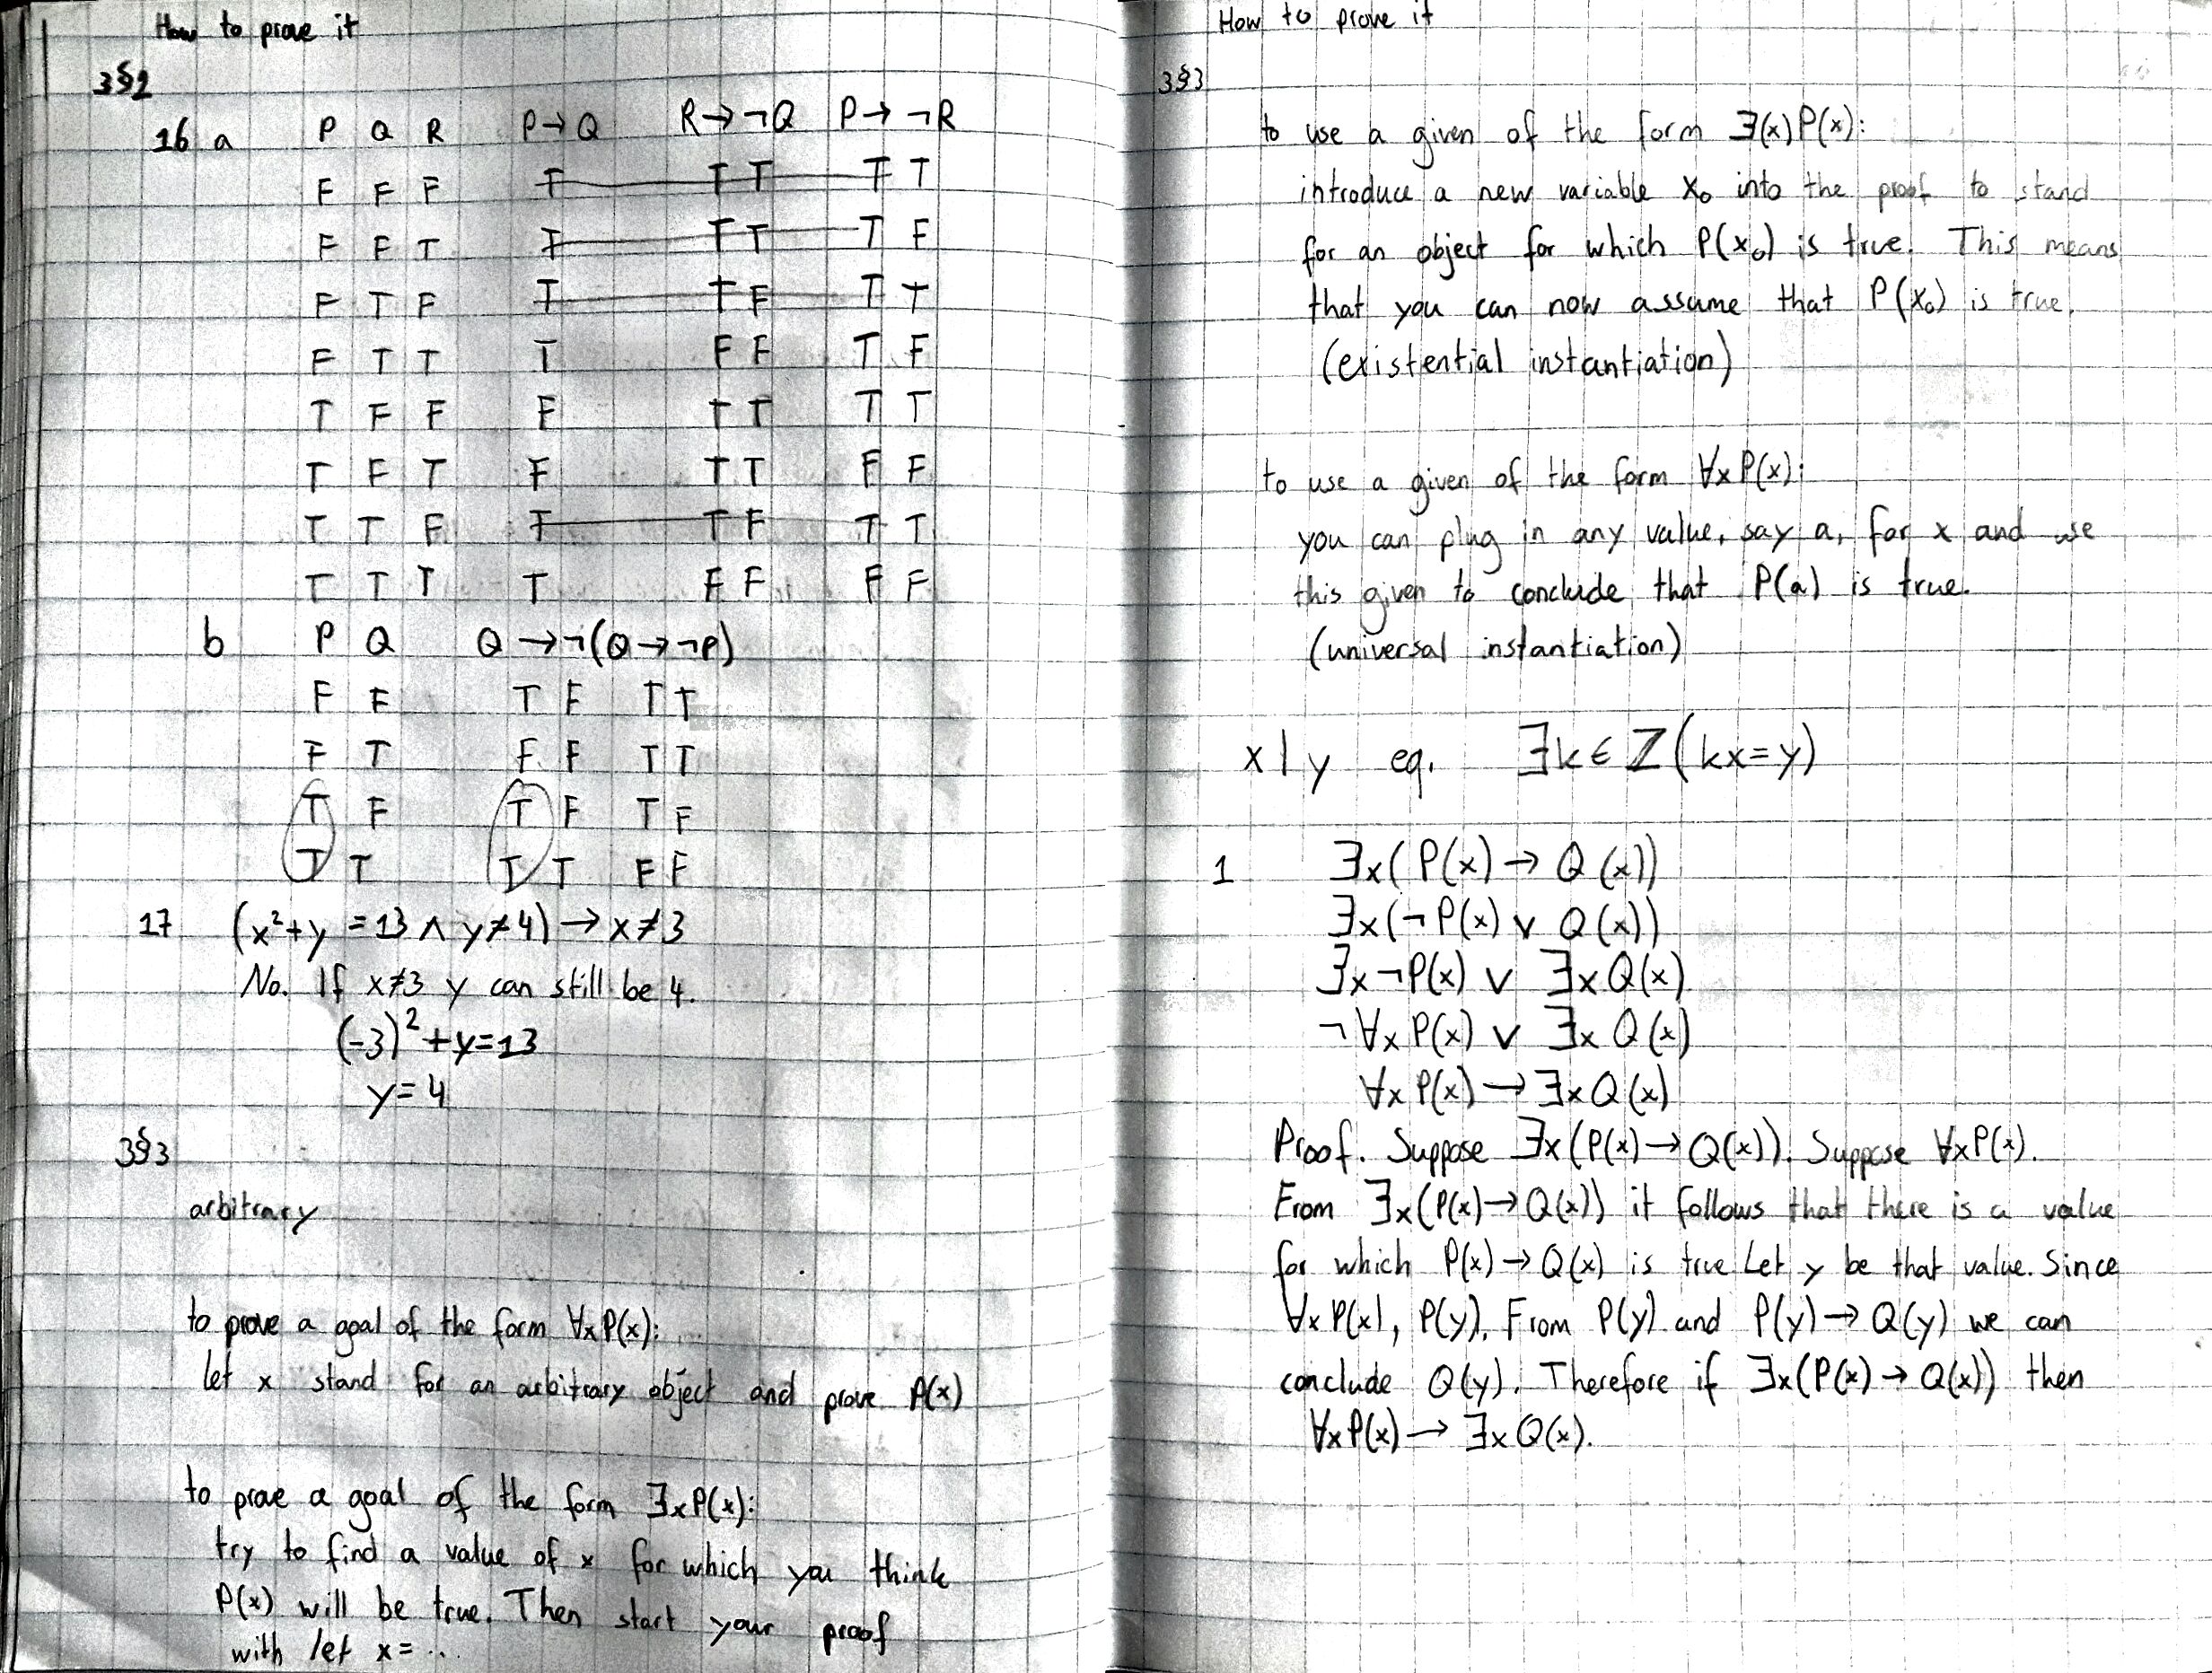 How to prove it
3§2
16 a P Q R P→Q R→¬Q P→¬R
F F F T T T T T
F F T T T T T F
F T F T T F T T
F T T T F F T F
T F F F T T T T
T F T F T T F F
T T F T T F T T
T T T T F F F F
b P Q Q→¬(Q→¬P)
F F T F T T
F T F F T T
T F T F T F
T T T T F F
17 (x²+y=13 ∧ y≠4)→x≠3
No. If x≠3 y can still be 4.
(-3)²+y=13
y=4
3§3
arbitrary
to prove a goal of the form ∀xP(x):
let x stand for an arbitrary object and prove P(x)
to prove a goal of the form ∃xP(x):
try to find a value of x for which you think
P(x) will be true. Then start your proof
with let x=...
How to prove it
3§3
to use a given of the form ∃(x)P(x):
introduce a new variable x₀ into the proof to stand
for an object for which P(x₀) is true. This means
that you can now assume that P(x₀) is true.
(existential instantiation)
to use a given of the form ∀xP(x):
you can plug in any value, say a, for x and use
this given to conclude that P(a) is true.
(universal instantiation)
x|y eq. ∃k∈ℤ(kx=y)
1 ∃x(P(x)→Q(x))
∃x(¬P(x)∨Q(x))
∃x¬P(x)∨∃xQ(x)
¬∀xP(x)∨∃xQ(x)
∀xP(x)→∃xQ(x)
Proof. Suppose ∃x(P(x)→Q(x)). Suppose ∀xP(x).
From ∃x(P(x)→Q(x)) it follows that there is a value
for which P(x)→Q(x) is true Let y be that value. Since
∀xP(x), P(y). From P(y) and P(y)→Q(y) we can
conclude Q(y). Therefore if ∃x(P(x)→Q(x)) then
∀xP(x)→∃xQ(x).